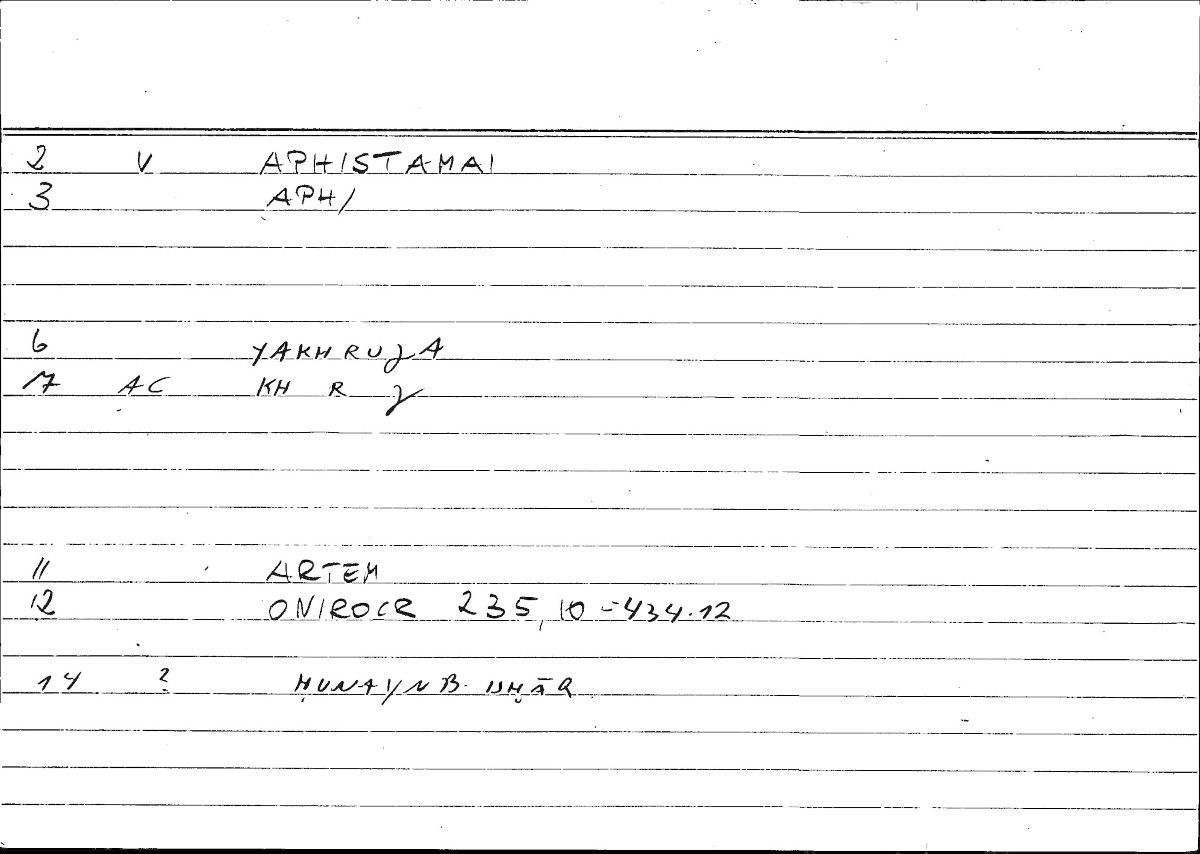 2 V APHISTAMAI
3 APH/
6 YAKHRUJA
17 AC KH R J
11 ARTEM
12 ONIROCR 235,10 = 434.12
14 ? ḤUNAYN B.